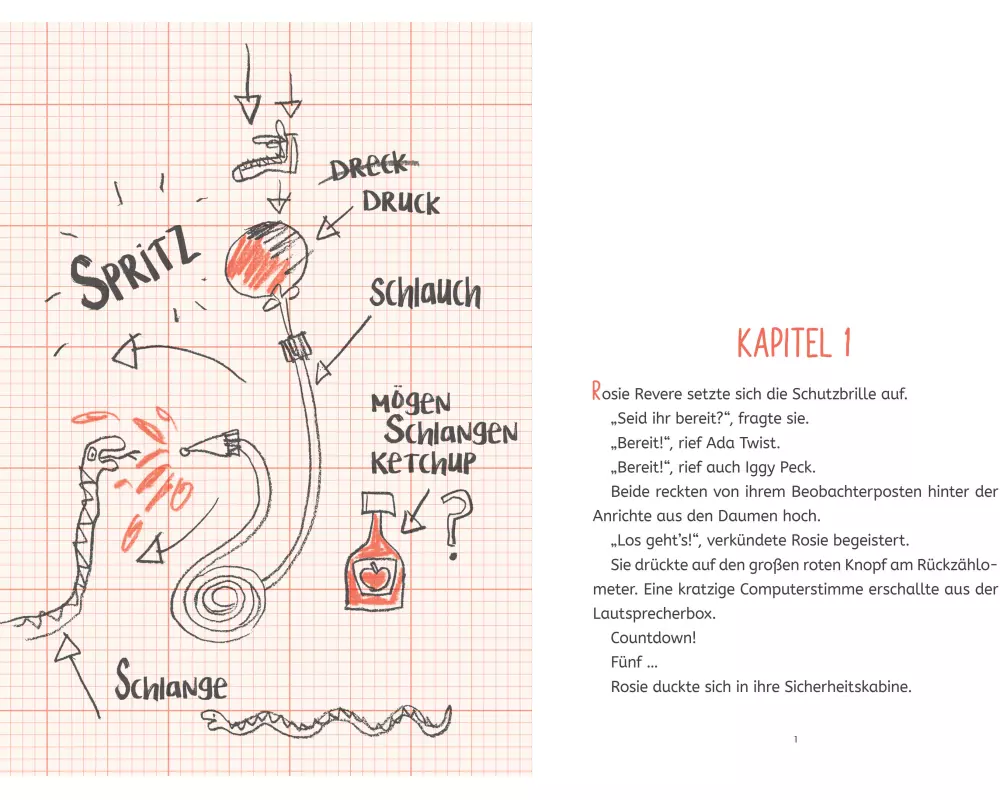 DRECK
DRUCK
SPRITZ
SCHLAUCH
MÖGEN
SCHLANGEN
KETCHUP
?
SCHLANGE
KAPITEL 1
Rosie Revere setzte sich die Schutzbrille auf.
„Seid ihr bereit?“, fragte sie.
„Bereit!“, rief Ada Twist.
„Bereit!“, rief auch Iggy Peck.
Beide reckten von ihrem Beobachterposten hinter der
Anrichte aus den Daumen hoch.
„Los geht’s!“, verkündete Rosie begeistert.
Sie drückte auf den großen roten Knopf am Rückzählo-
meter. Eine kratzige Computerstimme erschallte aus der
Lautsprecherbox.
Countdown!
Fünf ...
Rosie duckte sich in ihre Sicherheitskabine.
1